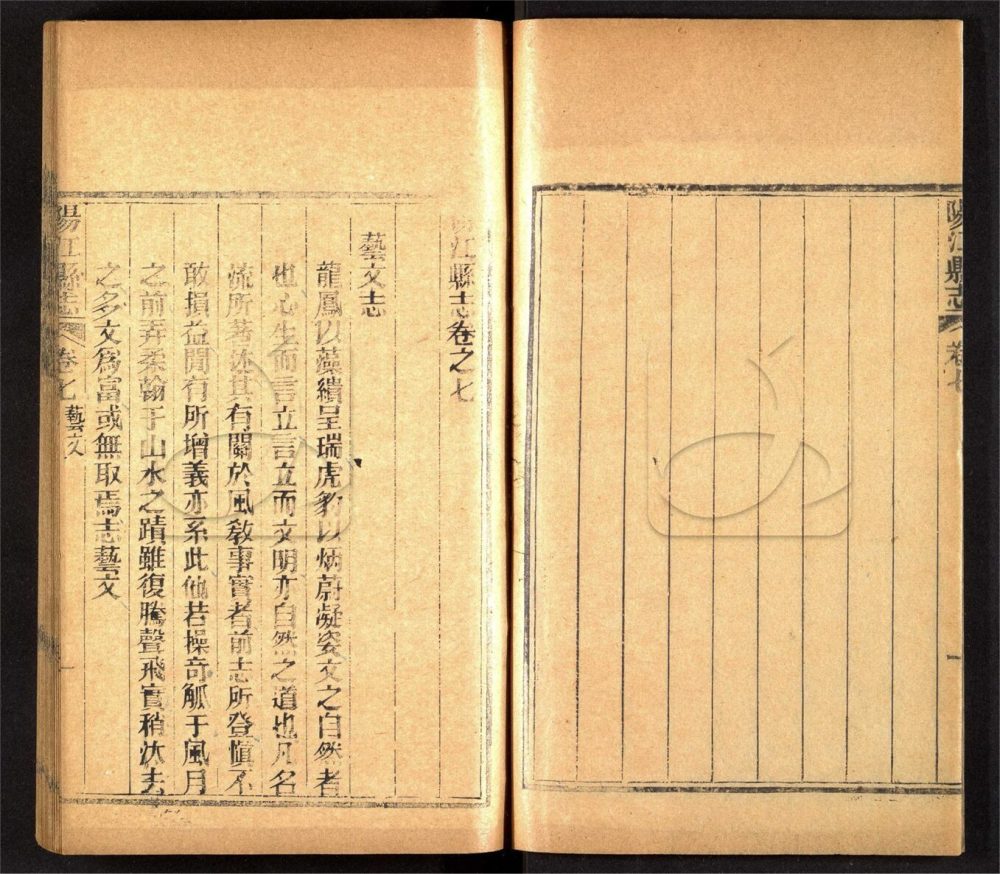 陽江縣志
卷七
一
陽江縣志卷之七
藝文志
龍鳳以藻繢呈瑞虎豹以炳蔚凝姿文之自然者
也心生而言立言立而文明亦自然之道也凡名
流所著述其有關於風敎事實者前志所登愼不
敢損益閒有所增義亦系此他若操奇觚于風月
之前弄柔翰于山水之蹟雖復騰聲飛實稍汰去
之多文爲富或無取焉志藝文
陽江縣志
卷七 藝文
一